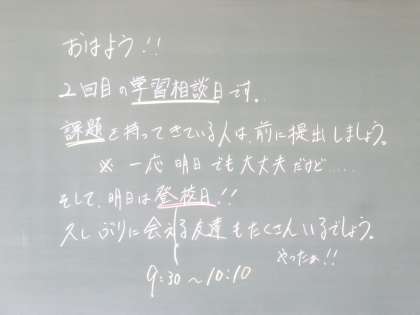 おはよう!!
2回目の学習相談日です。
課題を持ってきている人は、前に提出しましょう。
※ 一応 明日でも大丈夫だけど.....
そして、明日は登校日!!
久しぶりに会える友達もたくさんいるでしょう。
やったぁ!!
9:30～10:10